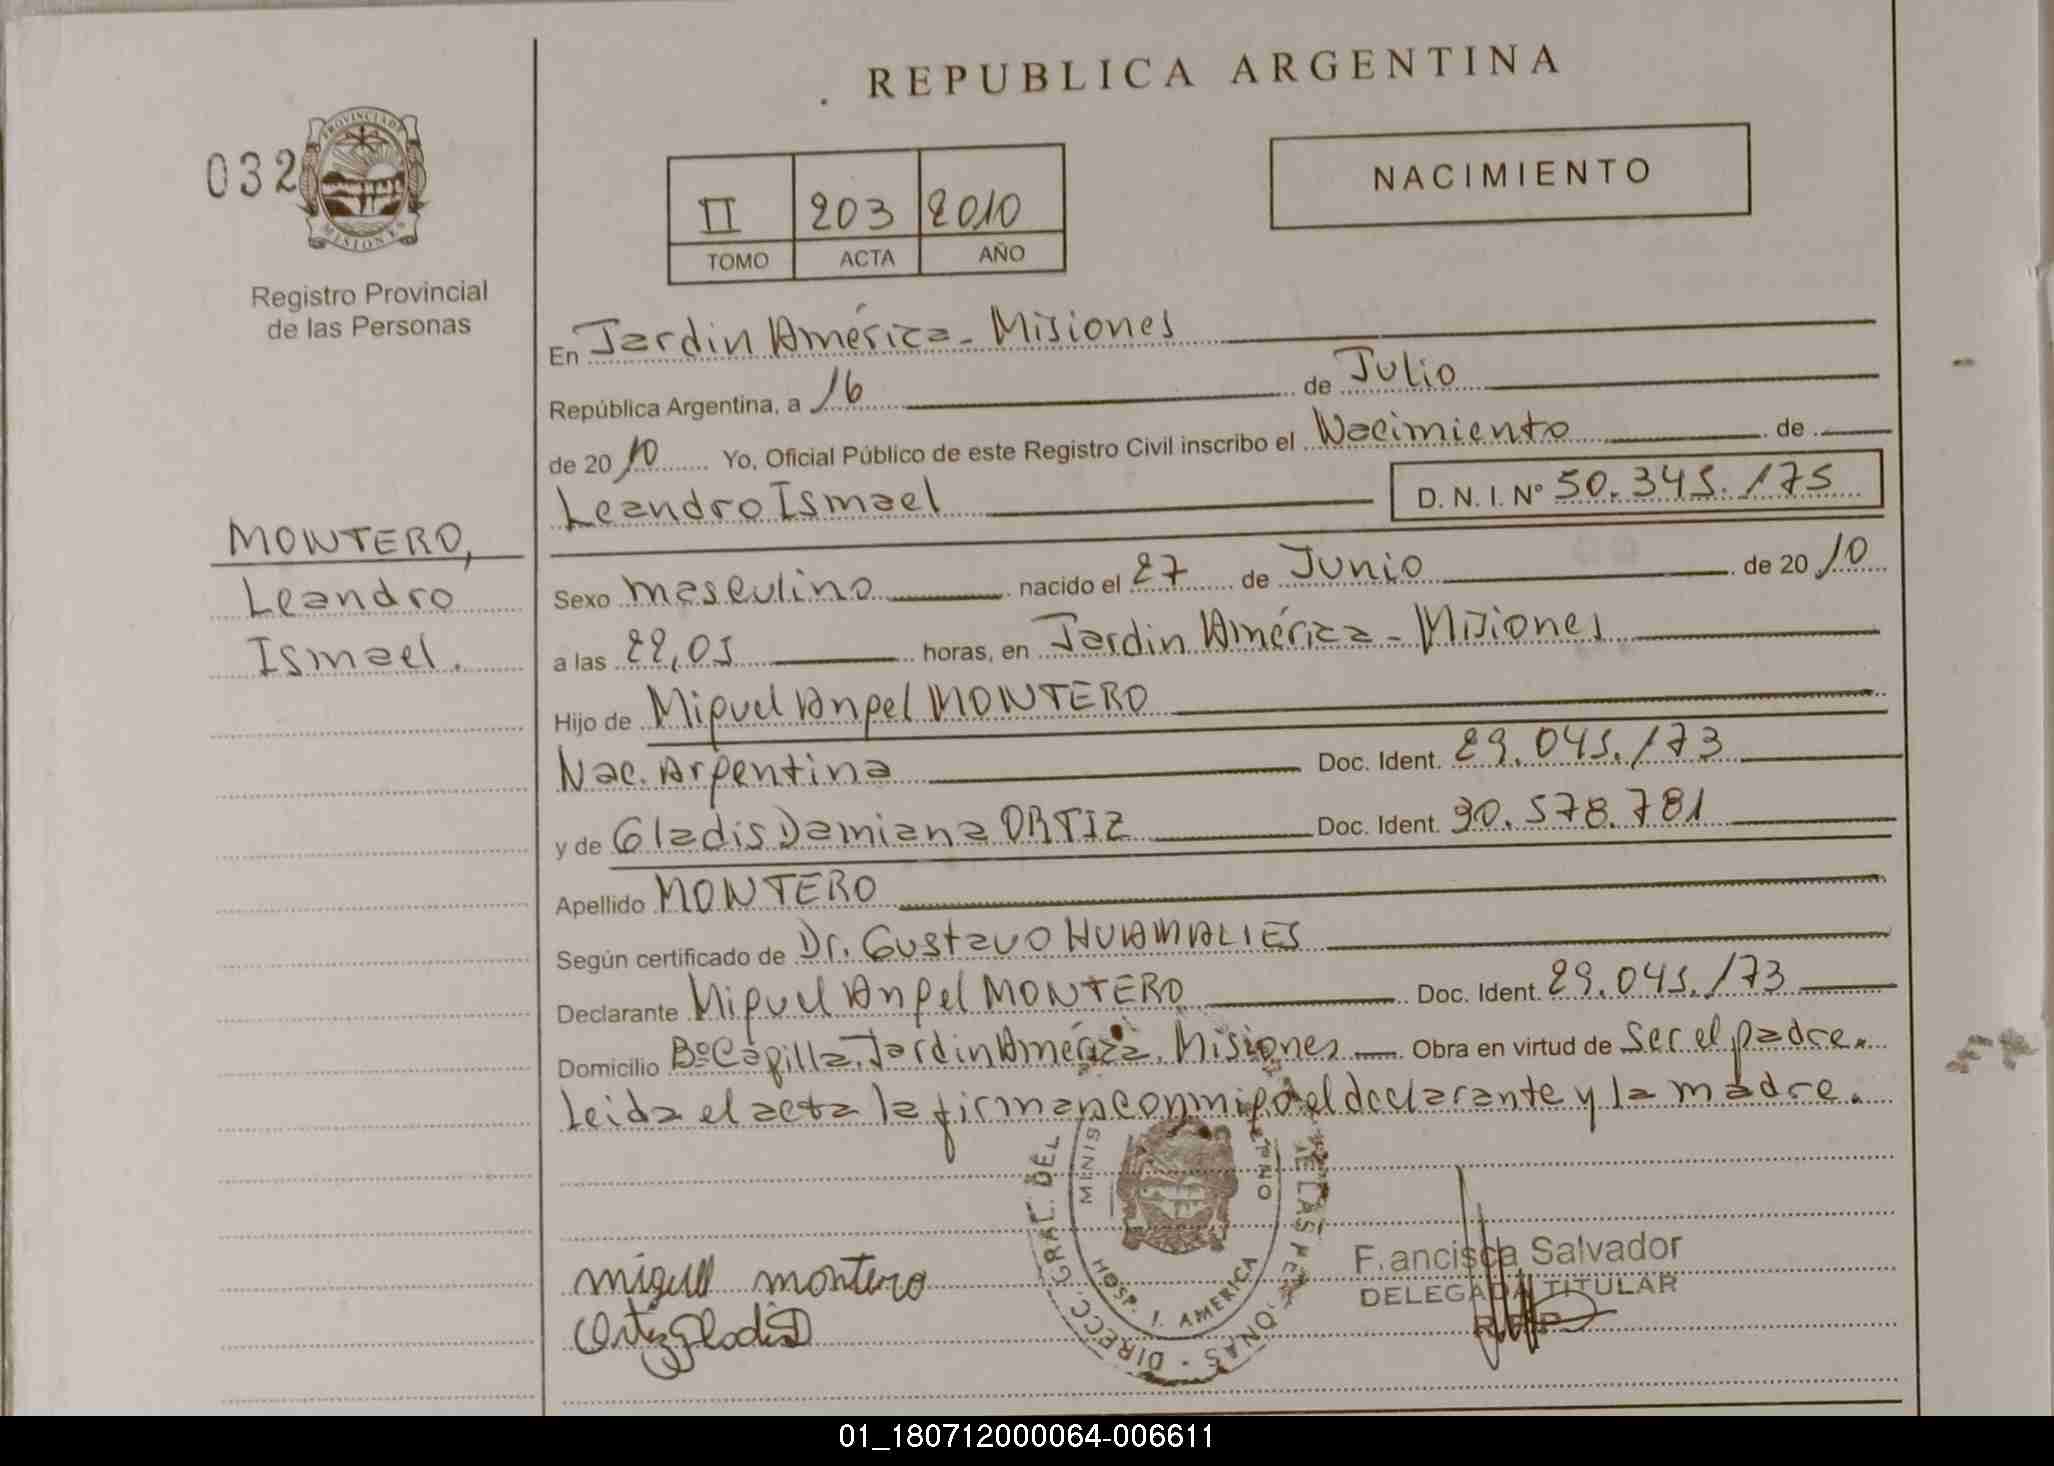 REPUBLICA ARGENTINA
032
PROVINCIA DE
MISIONES
Registro Provincial
de las Personas
II 203 2010
TOMO ACTA AÑO
NACIMIENTO
En Jardin América - Misiones
República Argentina, a 16 de Julio
de 2010 Yo, Oficial Público de este Registro Civil inscribo el Nacimiento de
Leandro Ismael D. N. I. Nº 50.345.175
MONTERO,
Leandro
Ismael.
Sexo masculino nacido el 27 de Junio de 2010
a las 22,05 horas, en Jardin América - Misiones
Hijo de Miguel Angel MONTERO
Nac. Argentina Doc. Ident. 29.045.173
y de Gladis Damiana ORTIZ Doc. Ident. 30.578.781
Apellido MONTERO
Según certificado de Dr. Gustavo HUAMALIES
Declarante Miguel Angel MONTERO Doc. Ident. 29.045.173
Domicilio Bº Capilla. Jardin América. Misiones Obra en virtud de Ser el padre.
Leida el acta la firman conmigo el declarante y la madre.
DIRECC. GRAL. DEL DE LAS
MINIS
HOSP. J. AMERICA
miguel montero
Ortiz Gladis D
F.ancisca Salvador
DELEGADA TITULAR
R.P.P
01_180712000064-006611